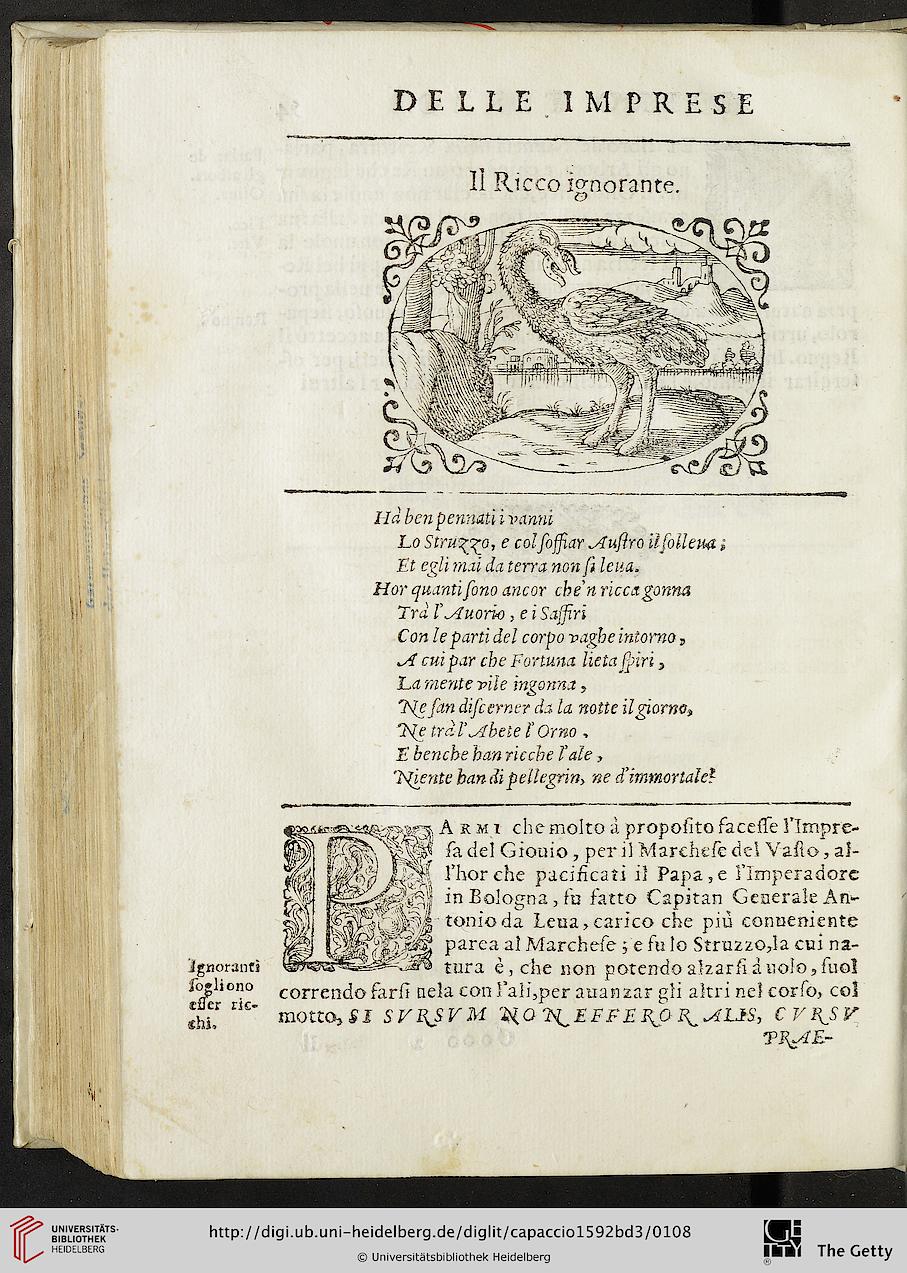 DELLE IMPRESE
Il Ricco ignorante.
Hà ben pennati i vanni
Lo Struzzo, e col soffiar Austro il solleua;
Et egli mai da terra non si leua.
Hor quanti sono ancor che'n ricca gonna
Trà l'Auorio, e i Saffiri
Con le parti del corpo vaghe intorno,
A cui par che Fortuna lieta spiri,
La mente vile ingonna,
Ne san discerner da la notte il giorno,
Ne trà l'Abete l'Orno,
E benche han ricche l'ale,
Niente han di pellegrin, ne d'immortale?
PARMI che molto à proposito facesse l'Impre-
sa del Giouio, per il Marchese del Vasto, al-
l'hor che pacificati il Papa, e l'Imperadore
in Bologna, fu fatto Capitan Generale An-
tonio da Leua, carico che più conueniente
parea al Marchese; e fu lo Struzzo, la cui na-
tura è, che non potendo alzarsi à uolo, suol
correndo farsi uela con l'ali, per auanzar gli altri nel corso, col
motto, SI SVRSVM NON EFFEROR ALIS, CVRSV
PRAE-
Ignoranti
sogliono
esser ric-
chi.
UNIVERSITÄTS-
BIBLIOTHEK
HEIDELBERG
http://digi.ub.uni-heidelberg.de/diglit/capaccio1592bd3/0108
© Universitätsbibliothek Heidelberg
The Getty